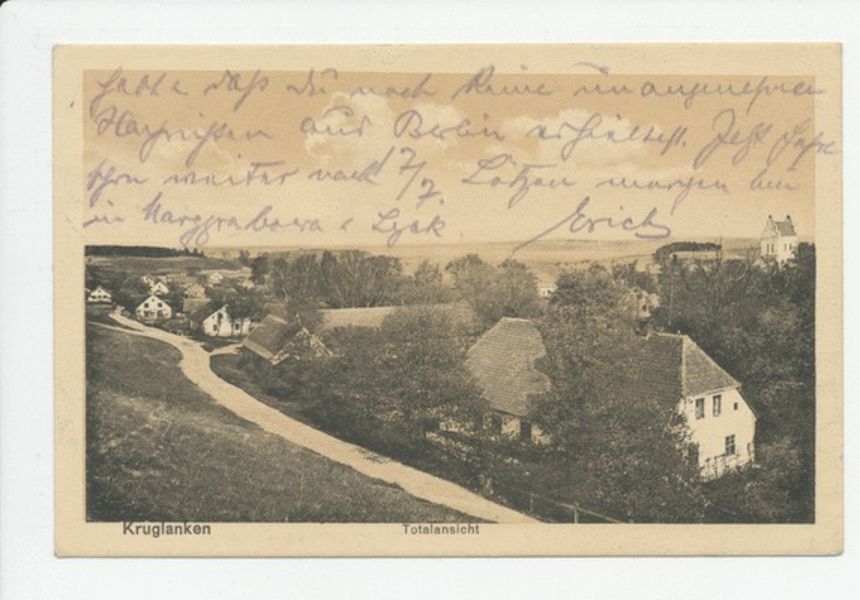 hatte daß du noch keine unangenehmen
Nachrichten aus Berlin erhieltest. Jetzt fahre
schon weiter nach Lötzen morgen bin
17/7.
in Marggrabowa & Lyck. Erich
Kruglanken
Totalansicht